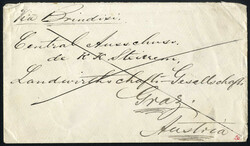 Via Brindisi.
Central Ausschuss.
de K. K. Steierm.
Landwirthschafts-Gesellschaft.
Graz,
Austria